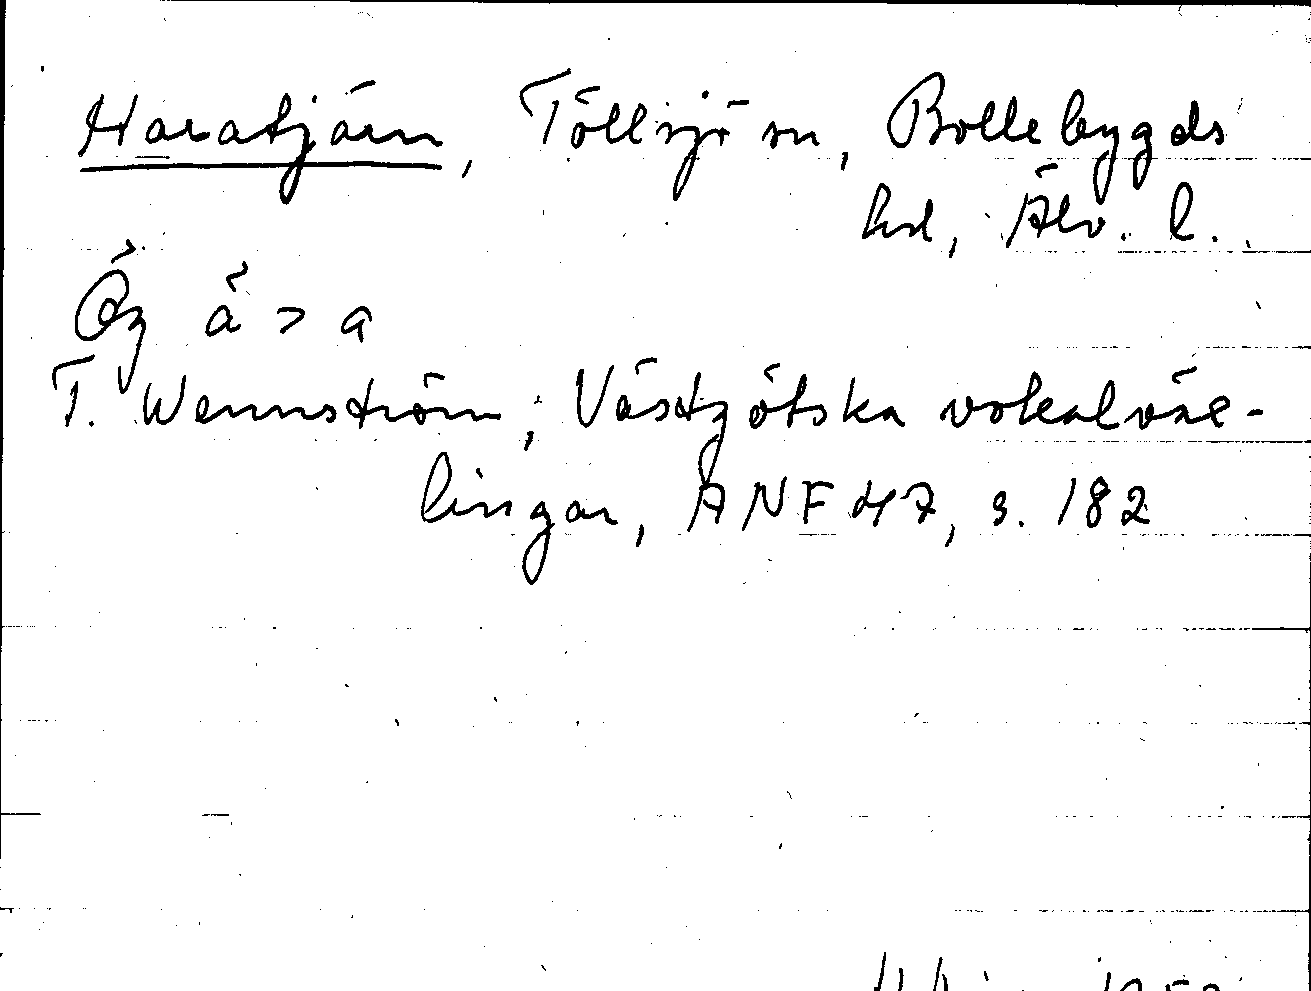 Haratjärn, Töllsjö sn, Bollebygds
hd, Älv. l.
Övg ä > a
T. Wennström, Västgötska vokalväx-
lingar, ANF 47, s. 182